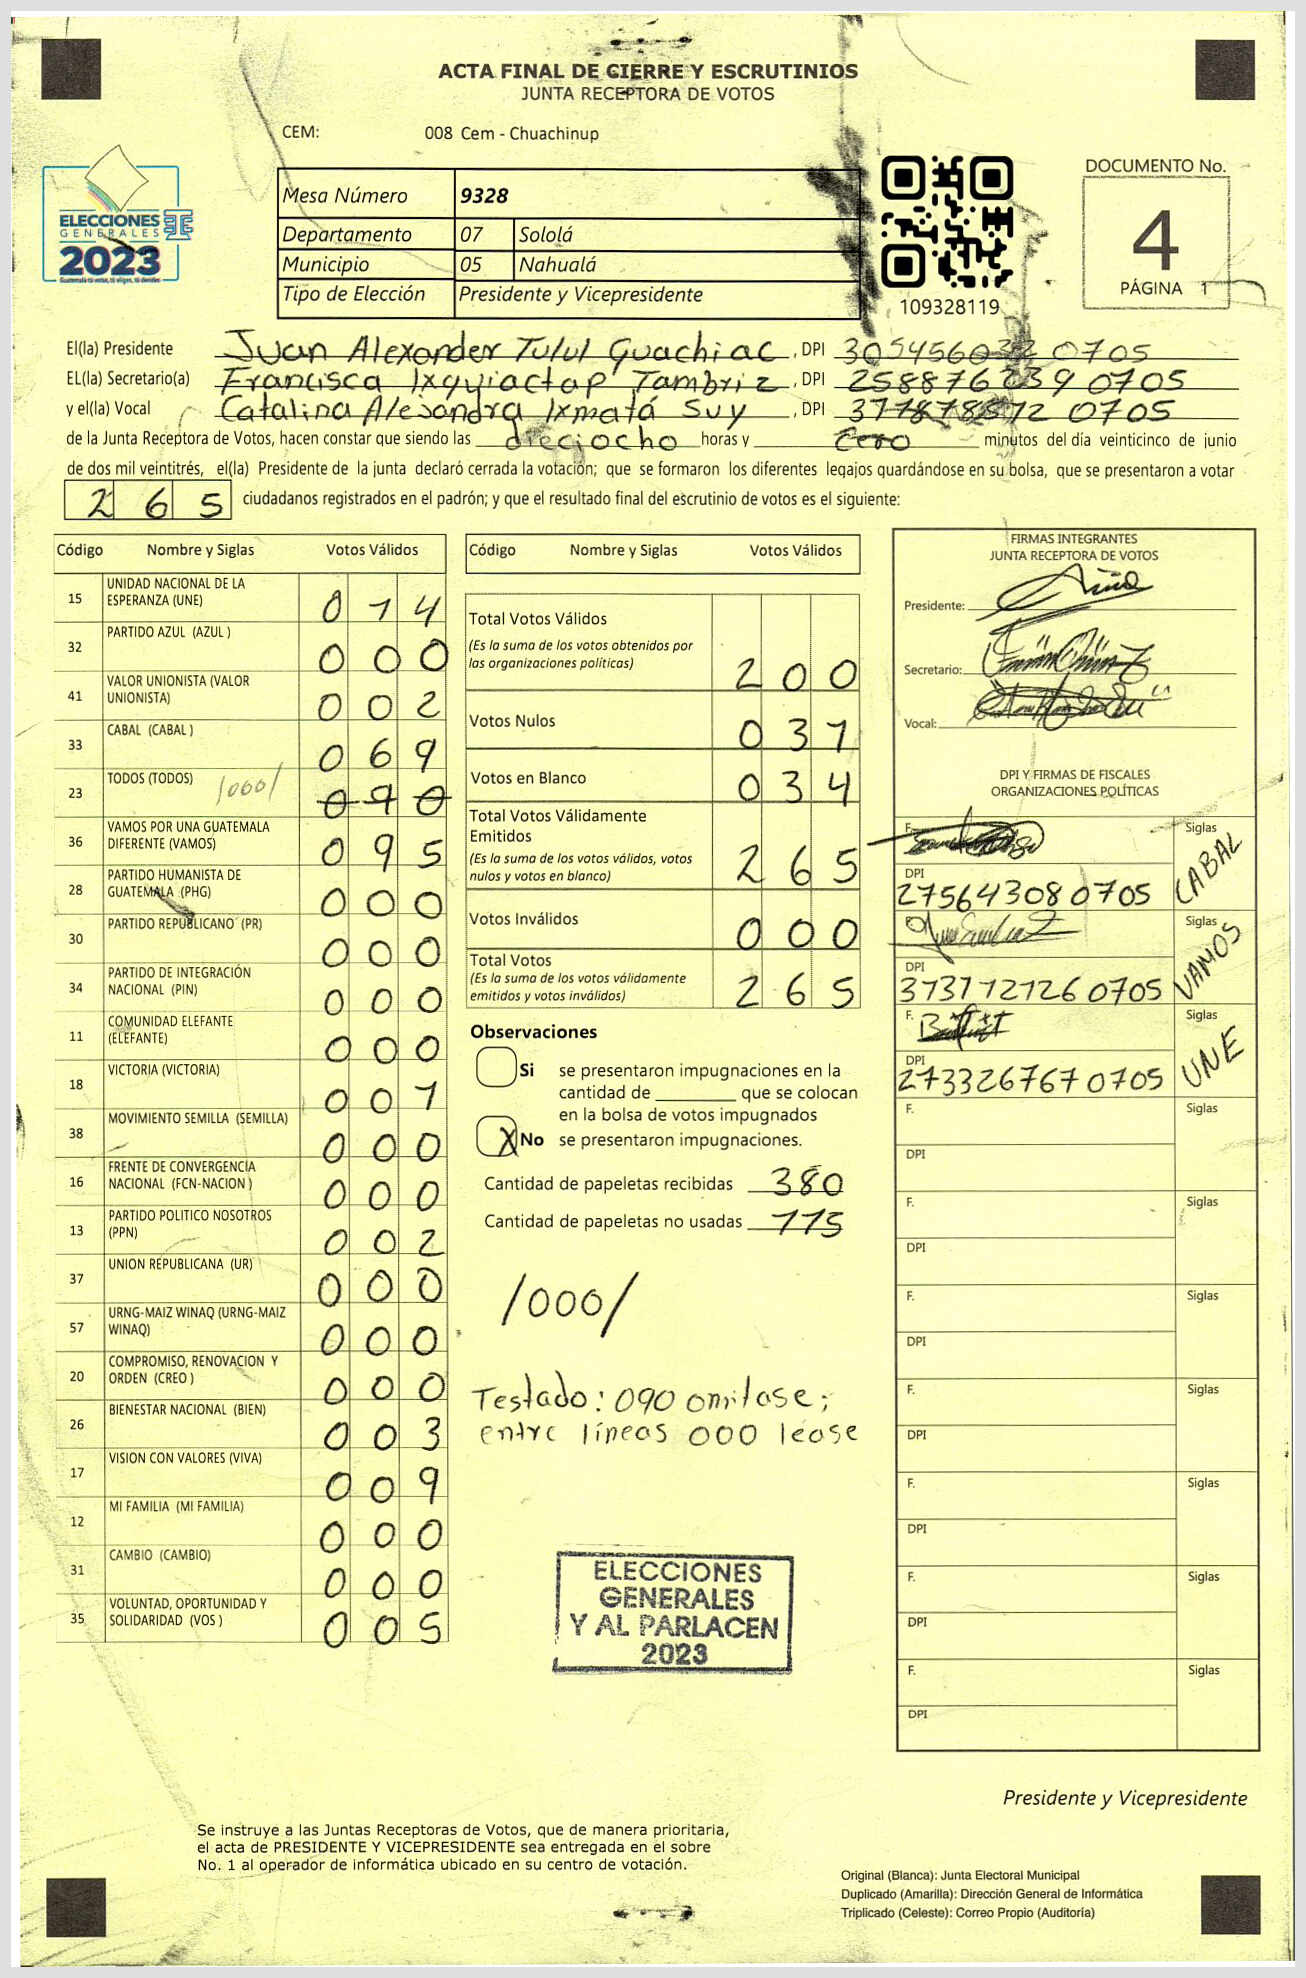 ACTA FINAL DE CIERRE Y ESCRUTINIOS
JUNTA RECEPTORA DE VOTOS
CEM: 008 Cem - Chuachinup
ELECCIONES
GENERALES
2023
Mesa Número 9328
Departamento 07 Sololá
Municipio 05 Nahualá
Tipo de Elección Presidente y Vicepresidente
109328119
DOCUMENTO No.
4
PÁGINA 1
El(la) Presidente Juan Alexander Tulul Guachiac, DPI 0705
EL(la) Secretario(a) Francisca Ixquiactap Tambriz, DPI 258876239 0705
y el(la) Vocal Catalina Alejandra Ixmatá Suy, DPI 0705
de la Junta Receptora de Votos, hacen constar que siendo las dieciocho horas y cero minutos del día veinticinco de junio
de dos mil veintitrés, el(la) Presidente de la junta declaró cerrada la votación; que se formaron los diferentes legajos quardándose en su bolsa, que se presentaron a votar
265 ciudadanos registrados en el padrón; y que el resultado final del escrutinio de votos es el siguiente:
Código Nombre y Siglas Votos Válidos
15 UNIDAD NACIONAL DE LA ESPERANZA (UNE) 014
32 PARTIDO AZUL (AZUL ) 000
41 VALOR UNIONISTA (VALOR UNIONISTA) 002
33 CABAL (CABAL ) 069
23 TODOS (TODOS) /000/ 090
36 VAMOS POR UNA GUATEMALA DIFERENTE (VAMOS) 095
28 PARTIDO HUMANISTA DE GUATEMALA (PHG) 000
30 PARTIDO REPUBLICANO (PR) 000
34 PARTIDO DE INTEGRACIÓN NACIONAL (PIN) 000
11 COMUNIDAD ELEFANTE (ELEFANTE) 000
18 VICTORIA (VICTORIA) 001
38 MOVIMIENTO SEMILLA (SEMILLA) 000
16 FRENTE DE CONVERGENCIA NACIONAL (FCN-NACION ) 000
13 PARTIDO POLITICO NOSOTROS (PPN) 002
37 UNION REPUBLICANA (UR) 000
57 URNG-MAIZ WINAQ (URNG-MAIZ WINAQ) 000
20 COMPROMISO, RENOVACION Y ORDEN (CREO ) 000
26 BIENESTAR NACIONAL (BIEN) 003
17 VISION CON VALORES (VIVA) 009
12 MI FAMILIA (MI FAMILIA) 000
31 CAMBIO (CAMBIO) 000
35 VOLUNTAD, OPORTUNIDAD Y SOLIDARIDAD (VOS ) 005
Código Nombre y Siglas Votos Válidos
Total Votos Válidos
(Es la suma de los votos obtenidos por
las organizaciones políticas) 200
Votos Nulos 031
Votos en Blanco 034
Total Votos Válidamente
Emitidos
(Es la suma de los votos válidos, votos
nulos y votos en blanco) 265
Votos Inválidos 000
Total Votos
(Es la suma de los votos válidamente
emitidos y votos inválidos) 265
Observaciones
Si se presentaron impugnaciones en la
cantidad de ________ que se colocan
en la bolsa de votos impugnados
X No se presentaron impugnaciones.
Cantidad de papeletas recibidas 380
Cantidad de papeletas no usadas 115
/000/
Testado: 090 omitase;
entre líneas 000 léase
ELECCIONES
GENERALES
Y AL PARLACEN
2023
FIRMAS INTEGRANTES
JUNTA RECEPTORA DE VOTOS
Presidente:
Secretario:
Vocal:
DPI Y FIRMAS DE FISCALES
ORGANIZACIONES POLÍTICAS
F. Siglas CABAL
DPI
275643080705
F. Siglas VAMOS
DPI
3131121260705
F. Siglas UNE
DPI
2733267670705
F. Siglas
DPI
F. Siglas
DPI
F. Siglas
DPI
F. Siglas
DPI
F. Siglas
DPI
F. Siglas
DPI
F. Siglas
DPI
Presidente y Vicepresidente
Se instruye a las Juntas Receptoras de Votos, que de manera prioritaria,
el acta de PRESIDENTE Y VICEPRESIDENTE sea entregada en el sobre
No. 1 al operador de informática ubicado en su centro de votación.
Original (Blanca): Junta Electoral Municipal
Duplicado (Amarilla): Dirección General de Informática
Triplicado (Celeste): Correo Propio (Auditoría)